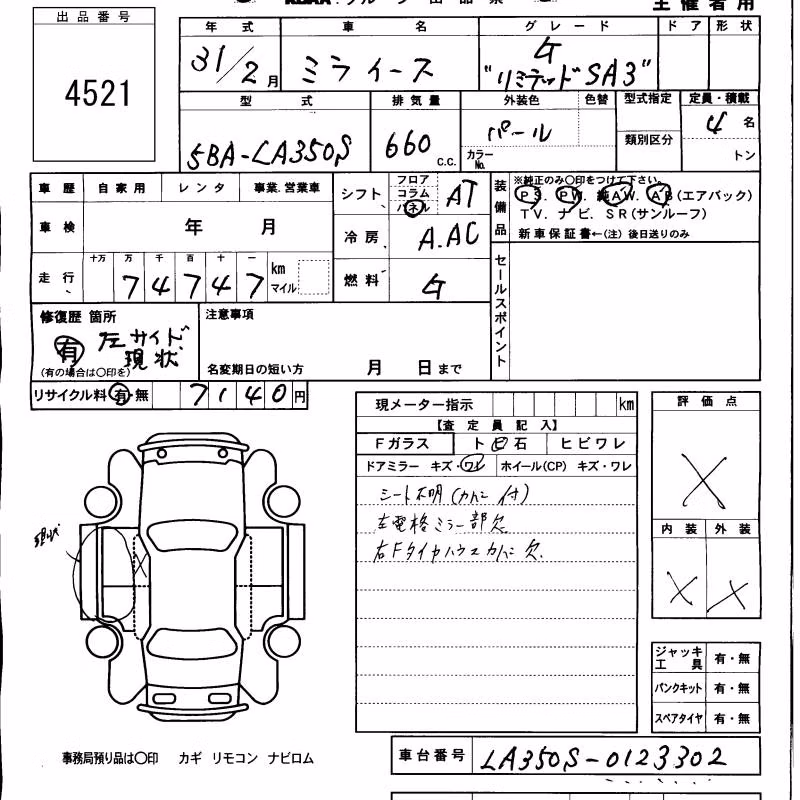 主催者用
出品番号
4521
年式 車名 グレード ドア 形状
31/2月 ミライース G "リミテッドSA3"
型式 排気量 外装色 色替 型式指定 定員・積載
5BA-LA350S 660 C.C. パール カラーNo. 類別区分 4名 トン
車歴 自家用 レンタ 事業.営業車
車検 年 月
走行 十万 万 千 百 十 一
74747 km マイル
シフト フロア コラム パネル AT
冷房 A.AC
燃料 G
装備品 ※純正のみ〇印をつけて下さい。
PS. PW. 純AW. AB(エアバック)
TV. ナビ. SR(サンルーフ)
新車保証書←(注)後日送りのみ
セールスポイント
修復歴 箇所
有 左サイド 現状
(有の場合は〇印を)
注意事項
名変期日の短い方 月 日まで
リサイクル料 有・無 7140円
現メーター指示 km
【査定員記入】
Fガラス ト 石 ヒビワレ
ドアミラー キズ・ワレ ホイール(CP) キズ・ワレ
シート不明(カバー付)
左電格ミラー部欠
右Fタイヤハウスカバー欠
現状
評価点
X
内装 外装
X X
ジャッキ工具 有・無
パンクキット 有・無
スペアタイヤ 有・無
事務局預り品は〇印 カギ リモコン ナビロム
車台番号 LA350S-0123302